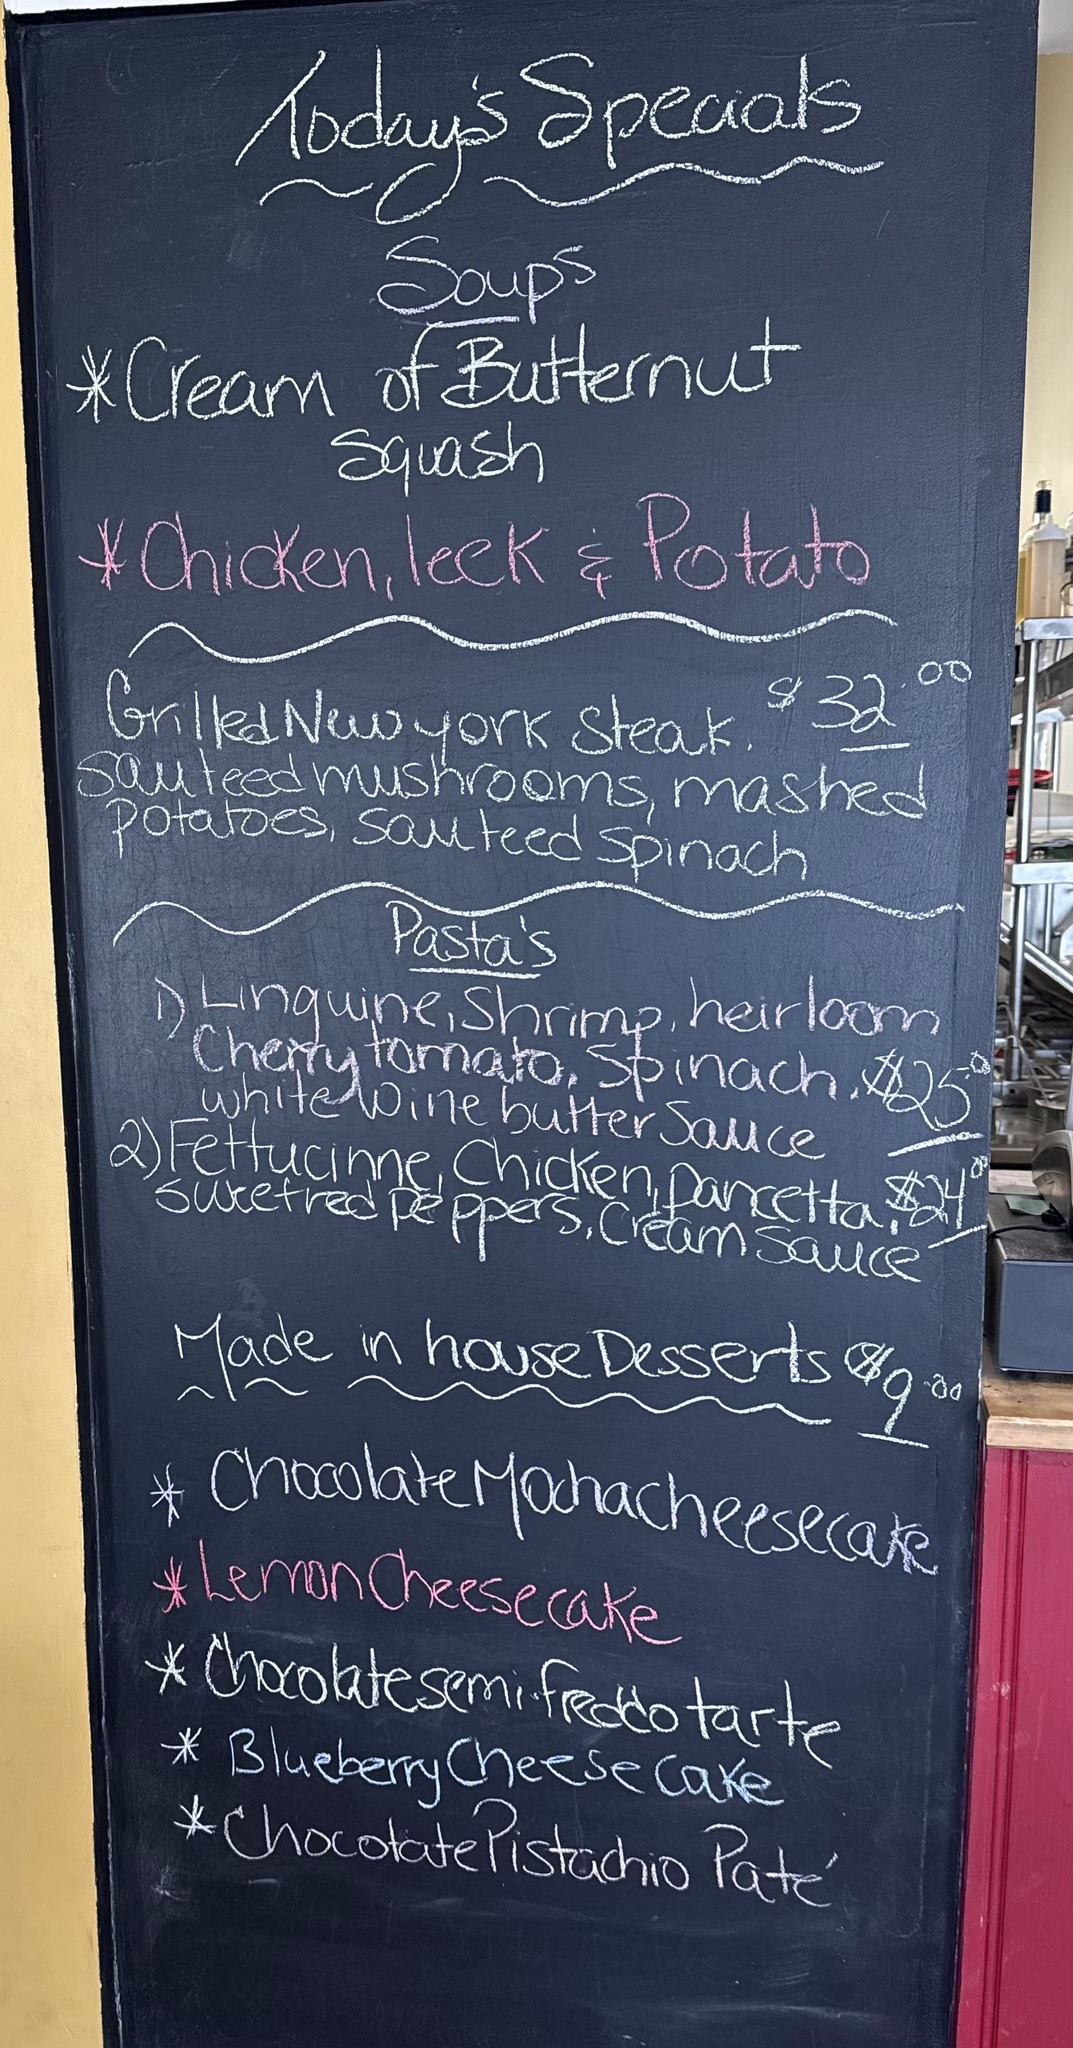 Today's Specials
Soups
*Cream of Butternut
squash
*Chicken, leek & Potato
Grilled New york steak. $32.00
sauteed mushrooms, mashed
potatoes, sauteed spinach
Pasta's
1) Linguine, Shrimp, heirloom
Cherry tomato, Spinach, $25.00
white wine butter sauce
2) Fettucinne, Chicken, pancetta, $24.00
sweet red peppers, Cream sauce
Made in house Desserts $9.00
* Chocolate Mocha cheesecake
* Lemon Cheesecake
* Chocolate semi-freddo tarte
* Blueberry Cheese cake
* Chocolate Pistachio Paté